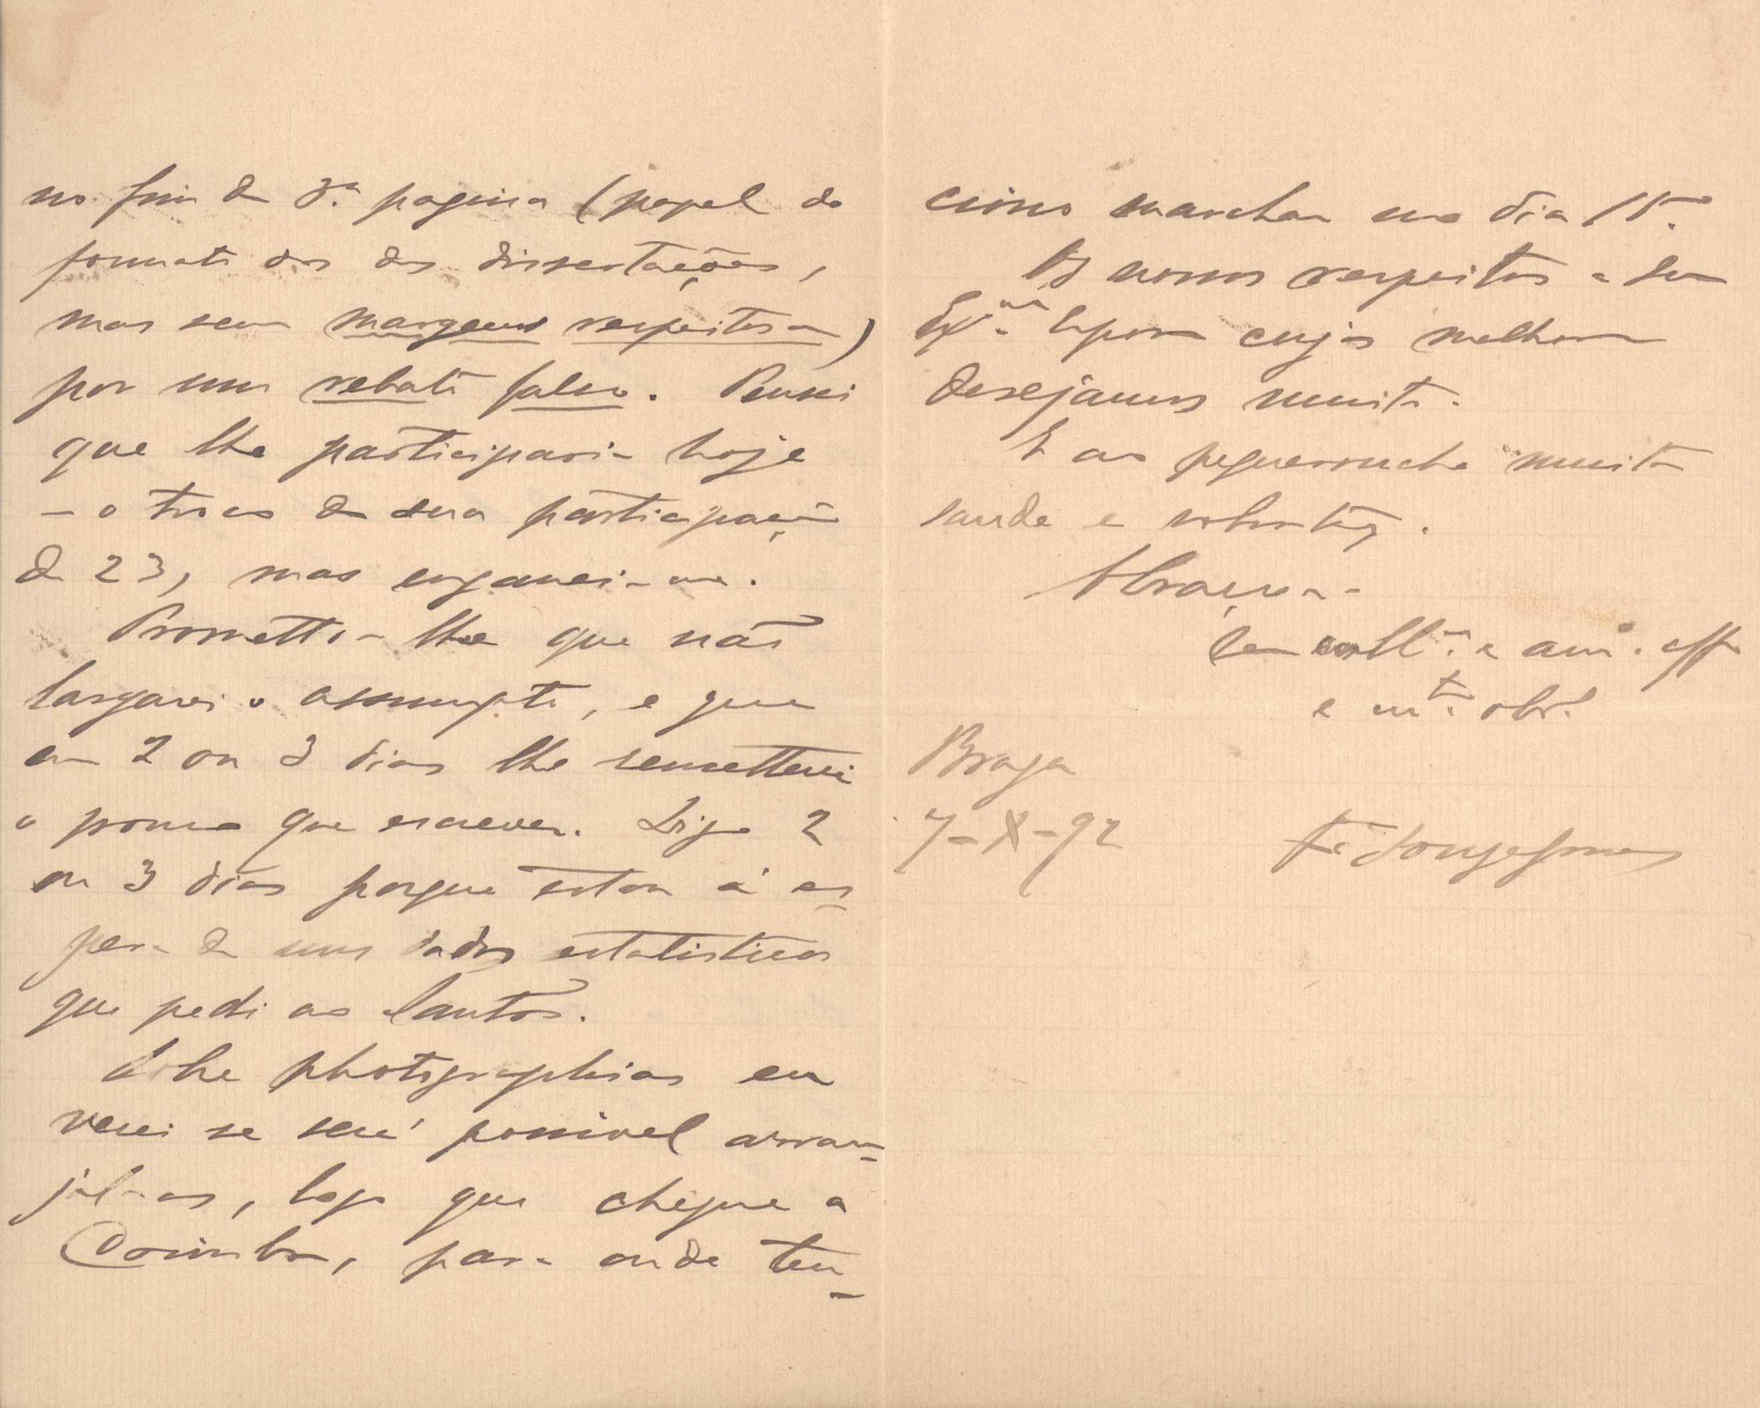 no fim da 3.ª pagina (papel do
formato dos das dissertações,
mas sem margens respeitosas)
por um rebate falso. Pensei
que lhe participaria hoje
— o troco da sua participação
de 23, mas enganei-me.
Prometto-lhe que não
largarei o assumpto, e que
em 2 ou 3 dias lhe remetterei
o pouco que escrever. Digo 2
ou 3 dias porque estou á es-
pera de uns dados estatisticos
que pedi ao Santos.
Sobre photographias eu
verei se será possivel arran-
jal-as, logo que chegue a
Coimbra, para onde ten-
ciono marchar no dia 15.
Os nossos respeitos a sua
Ex.ma Esposa cujas melhoras
desejamos muito.
E ao pequerrucho muita
saude e
Abraça-o
Seu coll.ª e am.º aff
e m.to obr.º
Braga
7-X-92